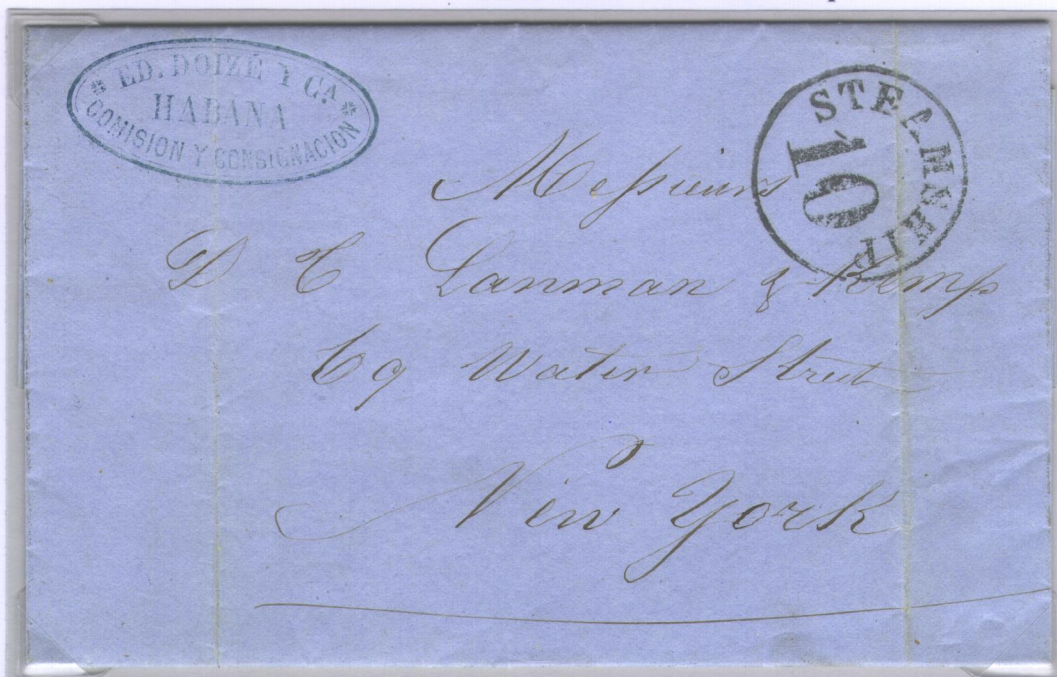 ED. DOIZÉ Y Cᴬ
HABANA
COMISION Y CONSIGNACION
STEAMSHIP
10
Messieurs
D C Lanman & Kemp
69 Water Street
New York